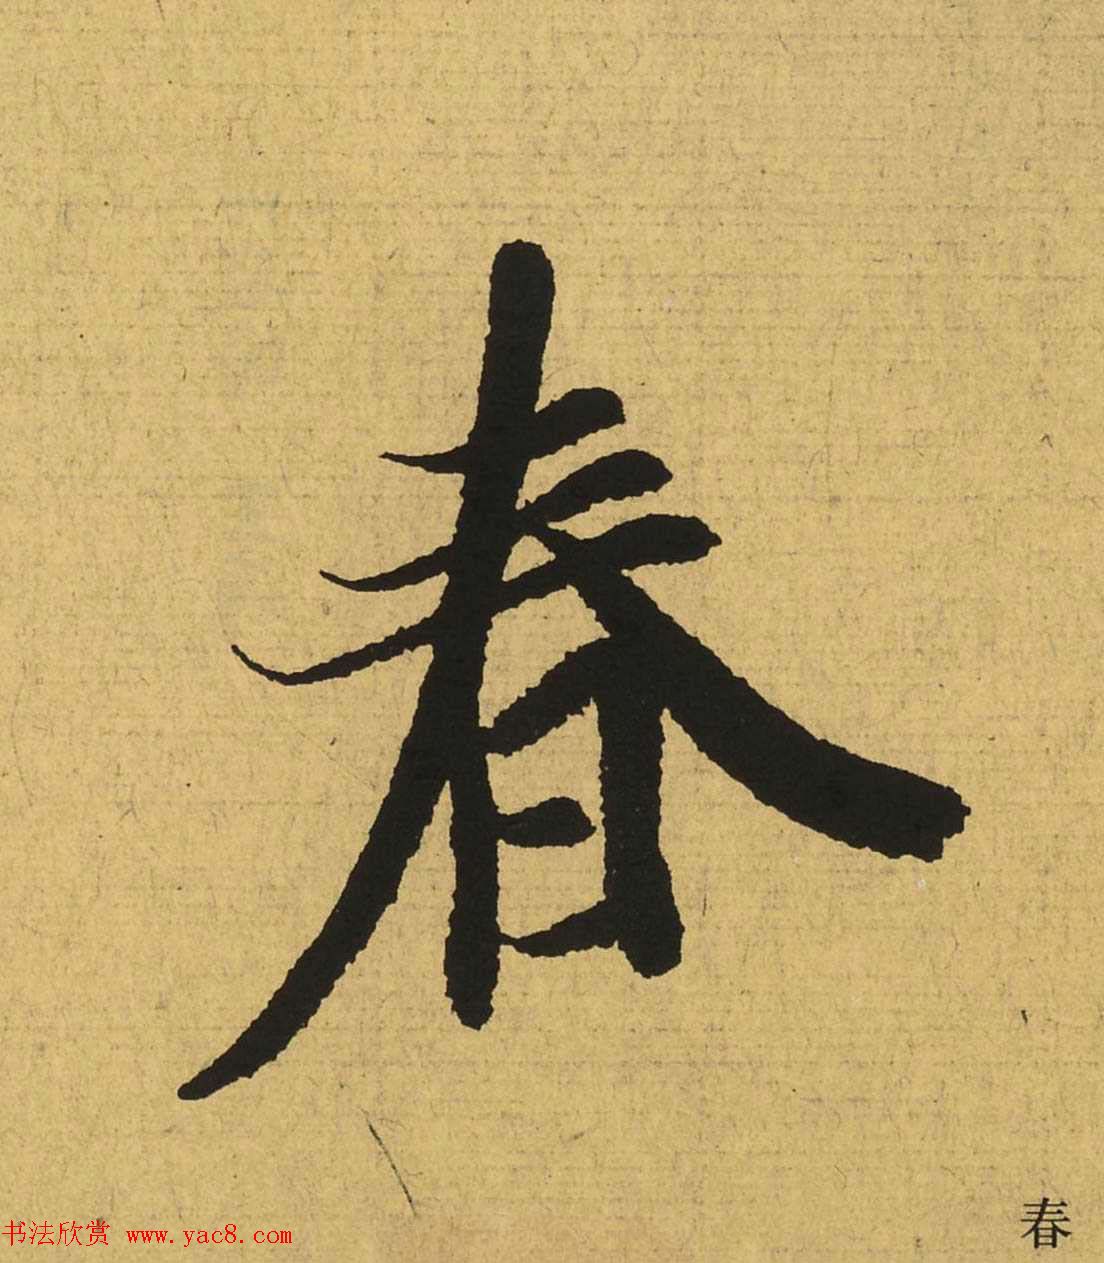 春
书法欣赏 www.yac8.com
春